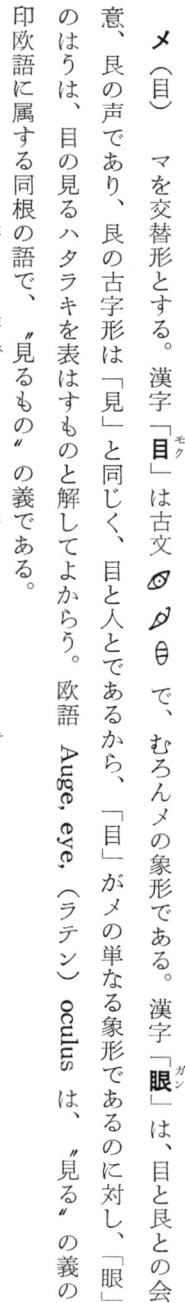 メ（目）　マを交替形とする。漢字「目」は古文　で、むろんメの象形である。漢字「眼」は、目と艮との会
意、艮の声であり、艮の古字形は「見」と同じく、目と人とであるから、「目」がメの単なる象形であるのに対し、「眼」
のはうは、目の見るハタラキを表はすものと解してよからう。欧語 Auge, eye,（ラテン）oculus は、〝見る〟の義の
印欧語に属する同根の語で、〝見るもの〟の義である。
モク
ガン